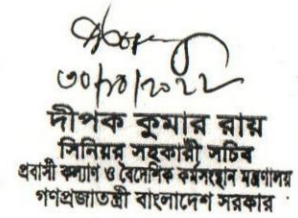 ৩০/১০/২০২২
দীপক কুমার রায়
সিনিয়র সহকারী সচিব
প্রবাসী কল্যাণ ও বৈদেশিক কর্মসংস্থান মন্ত্রণালয়
গণপ্রজাতন্ত্রী বাংলাদেশ সরকার